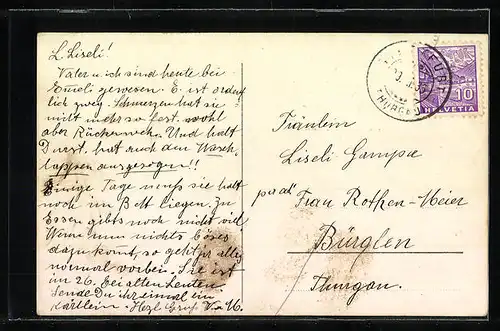 L. Liseli!
Vater u. ich sind heute bei
Emeli gewesen. E. ist ordent
lich zweg. Schmerzen hat sie
nicht mehr so fest. wohl
aber Rückenweh. Und halt
Durst, hat auch den Wasch-
lappen ausgesogen!!
Einige Tage muss sie halt
noch im Bett liegen. Zu
Essen gibts noch nicht viel
Wenn nun nichts böses
dazu komt, so geht's alles
normal vorbei. Sie ist
im 26. bei alten Leuten.
Sende Du ihr einmal ein
Kärtlein. Hrzl. Gruß V. u. M.
Fräulein
Liseli Gampe
p. adr. Frau Rothen-Meier
Bürglen
Thurgau.
10
HELVETIA